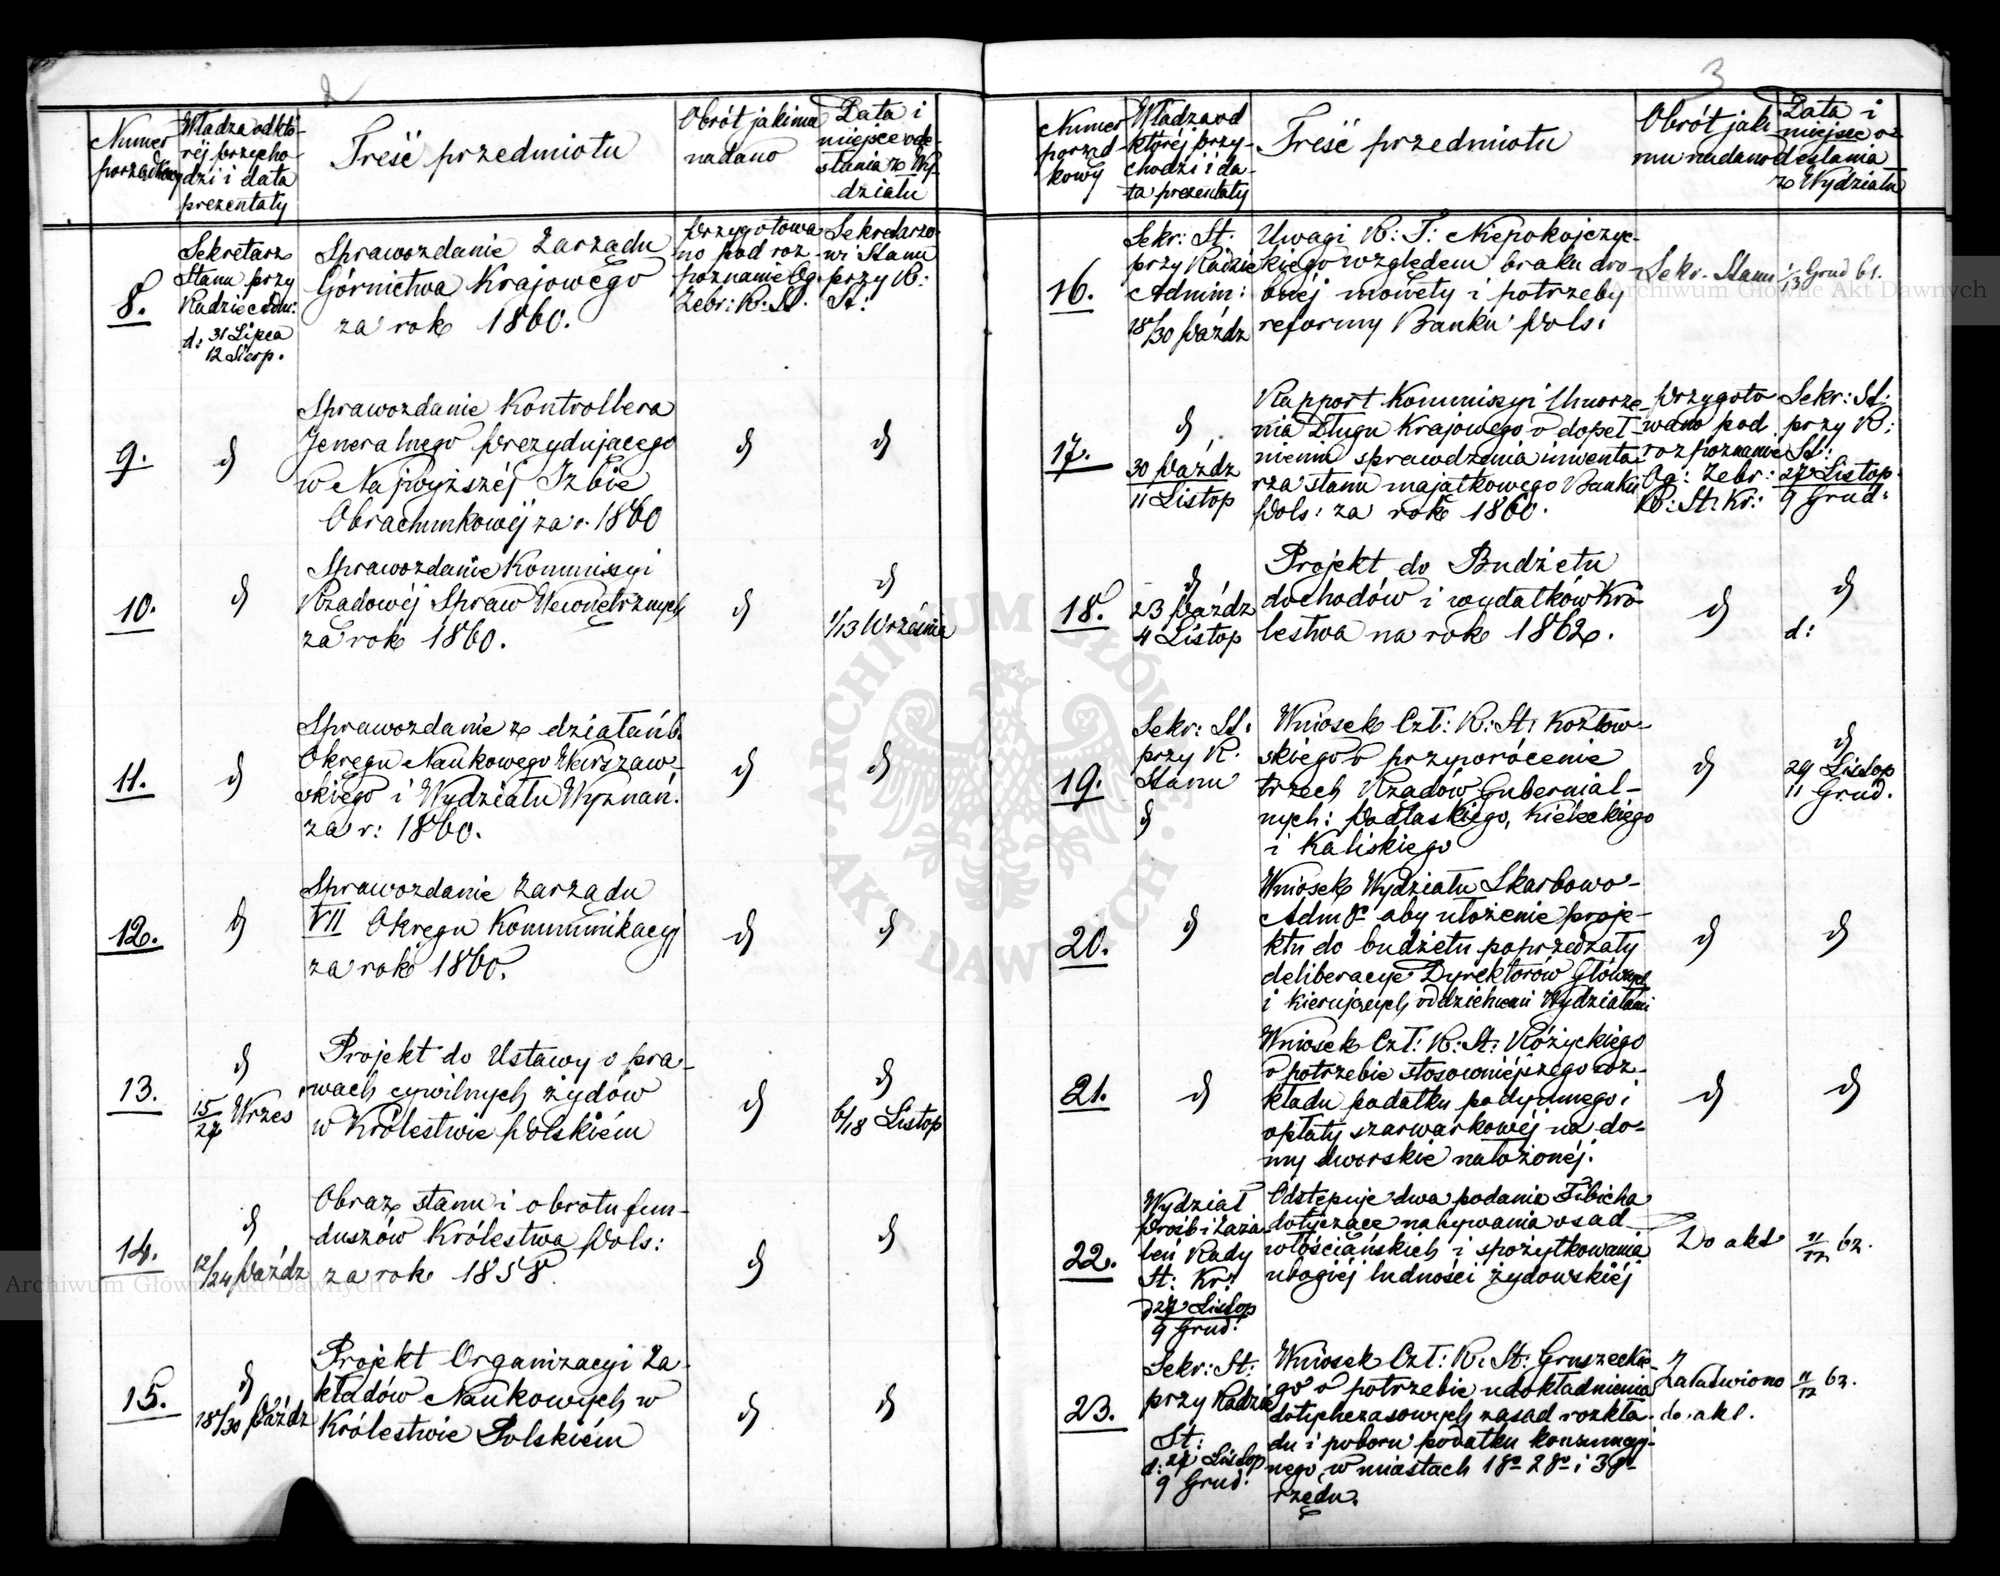 2
Numer
porządkowy
Władza od któ-
réj przycho-
dzi i data
prezentaty
Treść przedmiotu
Obrót jaki mu
nadano
Data i
miejsce ode-
słania z Wy-
działu
8.
Sekretarz
Stanu przy
Radzie Adm:
d: 31 Lipca
12 Sierp.
Sprawozdanie Zarządu
Górnictwa Krajowego
za rok 1860.
Przygotowa-
no pod roz-
poznanie Og.
Zebr: R. St.
Sekretarzo-
wi Stanu
przy R:
St:
9.
d
Sprawozdanie Kontrollera
Jeneralnego Prezydującego
w Najwyższéj Izbie
Obrachunkowéj za r. 1860
d
d
10.
d
Sprawozdanie Kommissyi
Rządowéj Spraw Wewnętrznych
za rok 1860.
d
d
1/13 Września
11.
d
Sprawozdanie z działań b.
Okręgu Naukowego Warszaw-
skiego i Wydziału Wyznań.
za r: 1860.
d
d
12.
d
Sprawozdanie Zarządu
VII Okręgu Kommunikacyj
za rok 1860.
d
d
13.
d
15/27 Wrześ
Projekt do Ustawy o pra-
wach cywilnych żydów
w Królestwie Polskiém
d
d
6/18 Listop
14.
d
12/24 Paźdz
Obraz stanu i obrotu fun-
duszów Królestwa Pols:
za rok 1858.
d
d
15.
d
18/30 Paźdz
Projekt Organizacyi Za-
kładów Naukowych w
Królestwie Polskiém
d
d
3
Numer
porząd
kowy
Władza od
któréj przy-
chodzi i da-
ta prezentaty
Treść przedmiotu
Obrót jaki
mu nadano
Data i
miejsce o-
desłania
z Wydziału
16.
Sekr: St:
przy Radzie
Admin:
18/30 Paźdz
Uwagi R: T: Niepokojczyc-
kiego względem braku dro-
bnéj monety i potrzeby
reformy Banku Pols:
Sekr. Stanu
1/13 Grud 61.
17.
d
30 Paźdz
11 Listop
Rapport Kommissyi Umorze-
nia Długu Krajowego o dopeł-
nieniu sprawdzenia inwenta-
rza stanu majątkowego Banku
Pols: za rok 1860.
Przygoto
wano pod
rozpoznanie
Og: Zebr:
R: St: Kr:
Sekr: St:
przy R:
St:
27 Listop
9 Grud:
18.
d
23 Paźdz
4 Listop
Projekt do Budżetu
dochodów i wydatków Kró
lestwa na rok 1862.
d
d
d:
19.
Sekr: St:
przy R.
Stanu
d
Wniosek Czł: R: St: Kozłow-
skiego o przywrócenie
trzech Rządów Gubernial-
nych: Podlaskiego, Kieleckiego
i Kaliskiego
d
d
29 Listop
11 Grud.
20.
d
Wniosek Wydziału Skarbowo-
Admgo aby ułożenie proje-
ktu do budżetu poprzedzały
deliberacye Dyrektorów Głównych
i kierujących oddzielnemi Wydziałami
d
d
21.
d
Wniosek Czł: R: St: Różyckiego
o potrzebie stosowniéjszego roz-
kładu podatku podymnego i
opłaty szarwarkowéj na do-
my dworskie nałożonéj.
d
d
22.
Wydział
Próśb i Zaża-
leń Rady
St: Kr:
d 27 Listop
9 Grud:
Odstępuje dwa podania Fibicha
dotyczące nabywania osad
włościańskich i spożytkowania
ubogiéj ludności żydowskiéj
Do akt
11/12 62.
23.
Sekr: St:
przy Radzie
St:
d: 27 Listop
9 Grud:
Wniosek Czł: R: St: Gruszeckie-
go o potrzebie udokładnienia
dotychczasowych zasad rozkła-
du i poboru podatku konsumcyj-
nego w miastach 1go 2go i 3go
rzędu.
Załatwiono
do akt.
11/12 62.
Archiwum Główne Akt Dawnych
Archiwum Główne Akt Dawnych
ARCHIWUM GŁÓWNE
AKT DAWNYCH